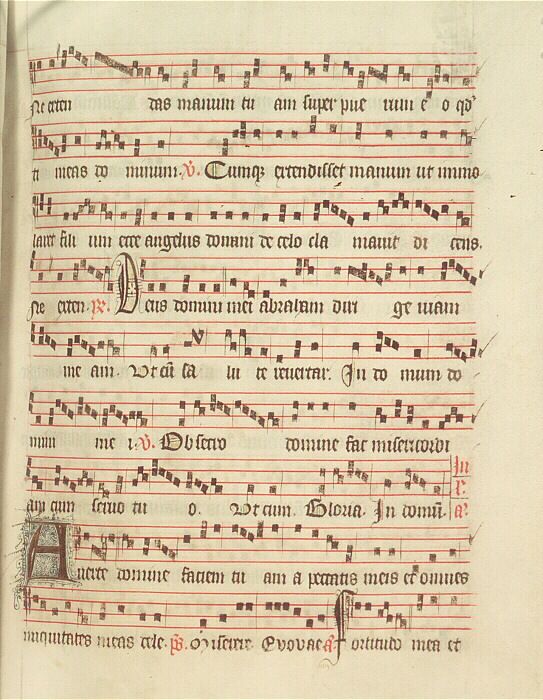 Ne exten das manum tu am super pue rum e o qd'
ti meas do minum. V. Cumq; extendisset manum ut immo
laret fili um ecce angelus domini de celo cla mauit di cens.
Ne exten. R. Deus domini mei abraham diri ge uiam
me am. Vt cū sa lu te reuertar. In do mum do
mini me i. V. Obsecro domine fac misericordi
am cum seruo tu o. Vt cum. Gloria. In domū. In
l'.
a.
Auerte domine faciem tu am a peccatis meis et omnes
iniquitates meas dele. ps. Miserere. Euouae a. Fortitudo mea et